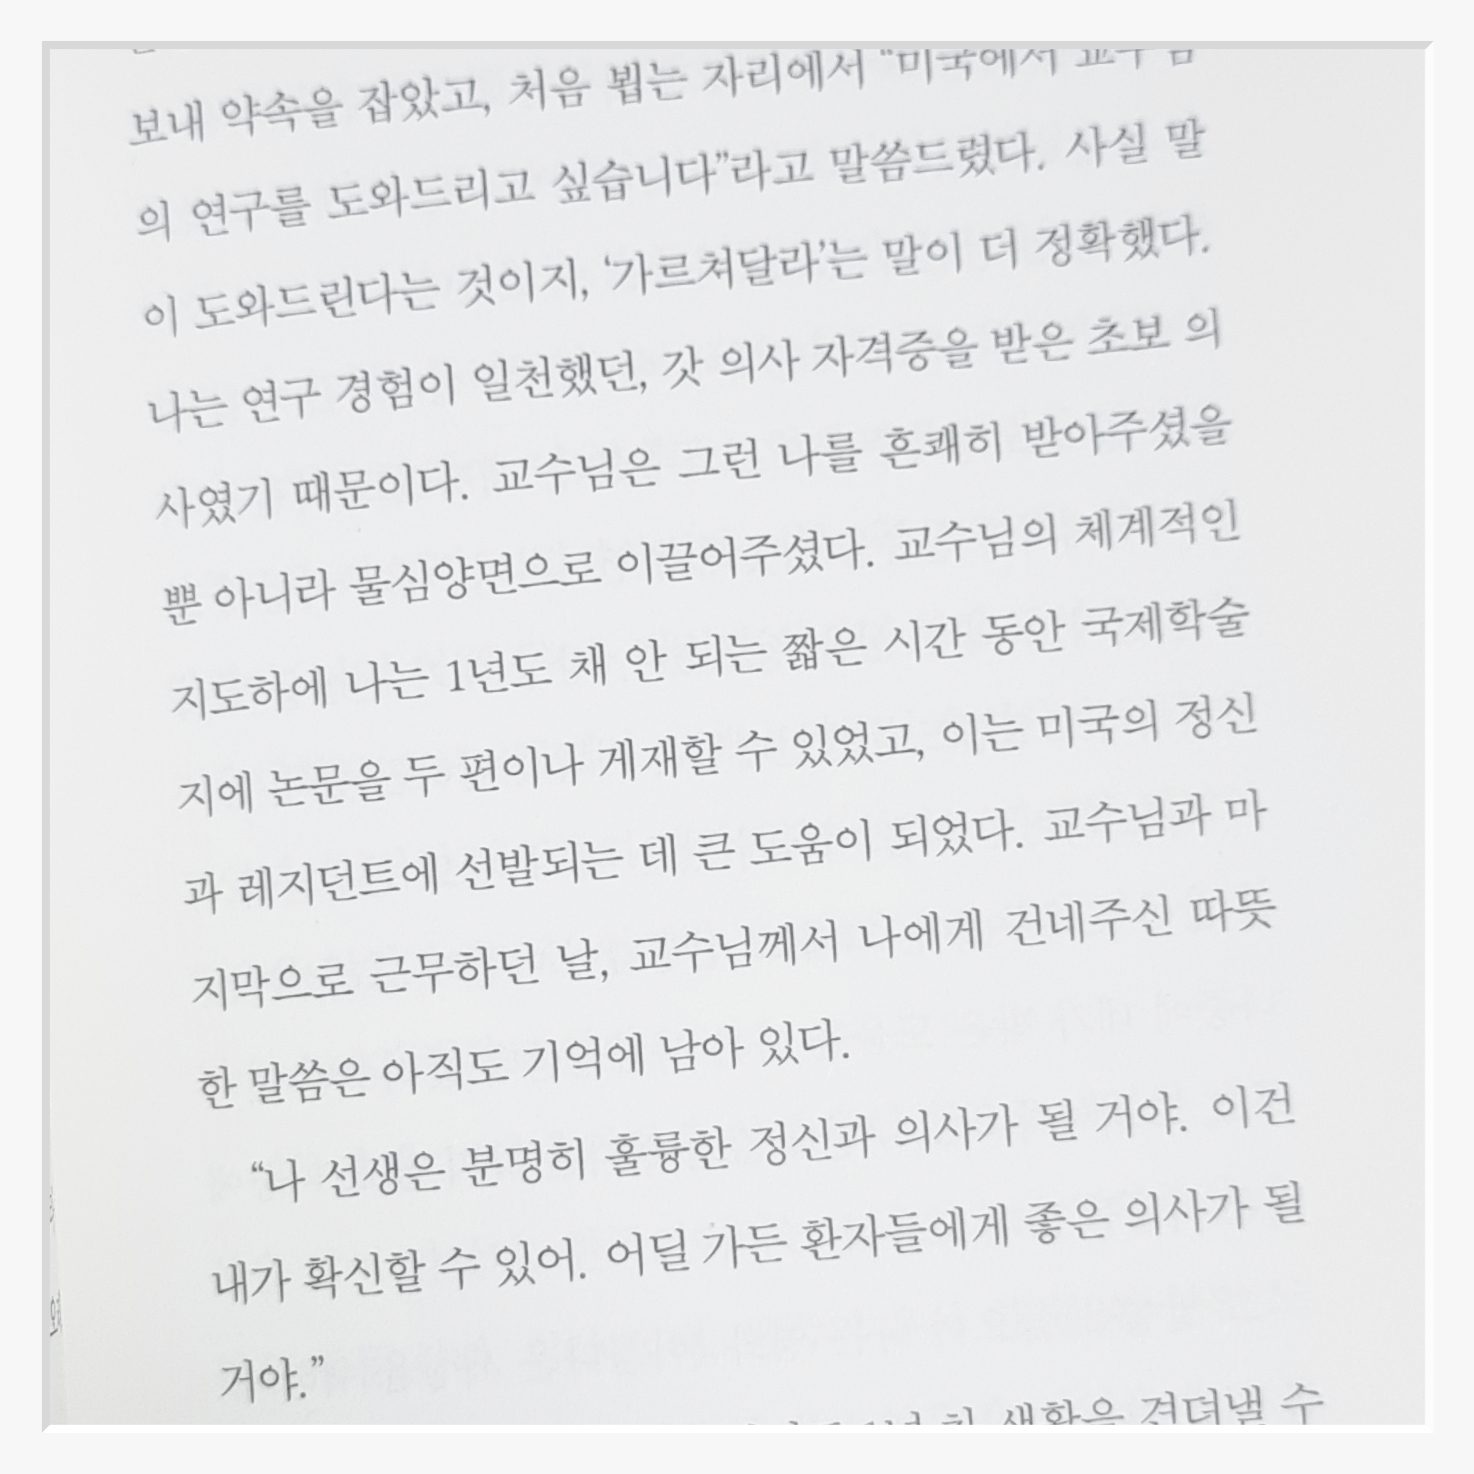 보내 약속을 잡았고, 처음 뵙는 자리에서 “미국에서 교수님
의 연구를 도와드리고 싶습니다”라고 말씀드렸다. 사실 말
이 도와드린다는 것이지, ‘가르쳐달라’는 말이 더 정확했다.
나는 연구 경험이 일천했던, 갓 의사 자격증을 받은 초보 의
사였기 때문이다. 교수님은 그런 나를 흔쾌히 받아주셨을
뿐 아니라 물심양면으로 이끌어주셨다. 교수님의 체계적인
지도하에 나는 1년도 채 안 되는 짧은 시간 동안 국제학술
지에 논문을 두 편이나 게재할 수 있었고, 이는 미국의 정신
과 레지던트에 선발되는 데 큰 도움이 되었다. 교수님과 마
지막으로 근무하던 날, 교수님께서 나에게 건네주신 따뜻
한 말씀은 아직도 기억에 남아 있다.
“나 선생은 분명히 훌륭한 정신과 의사가 될 거야. 이건
내가 확신할 수 있어. 어딜 가든 환자들에게 좋은 의사가 될
거야.”
생활을 견뎌낼 수